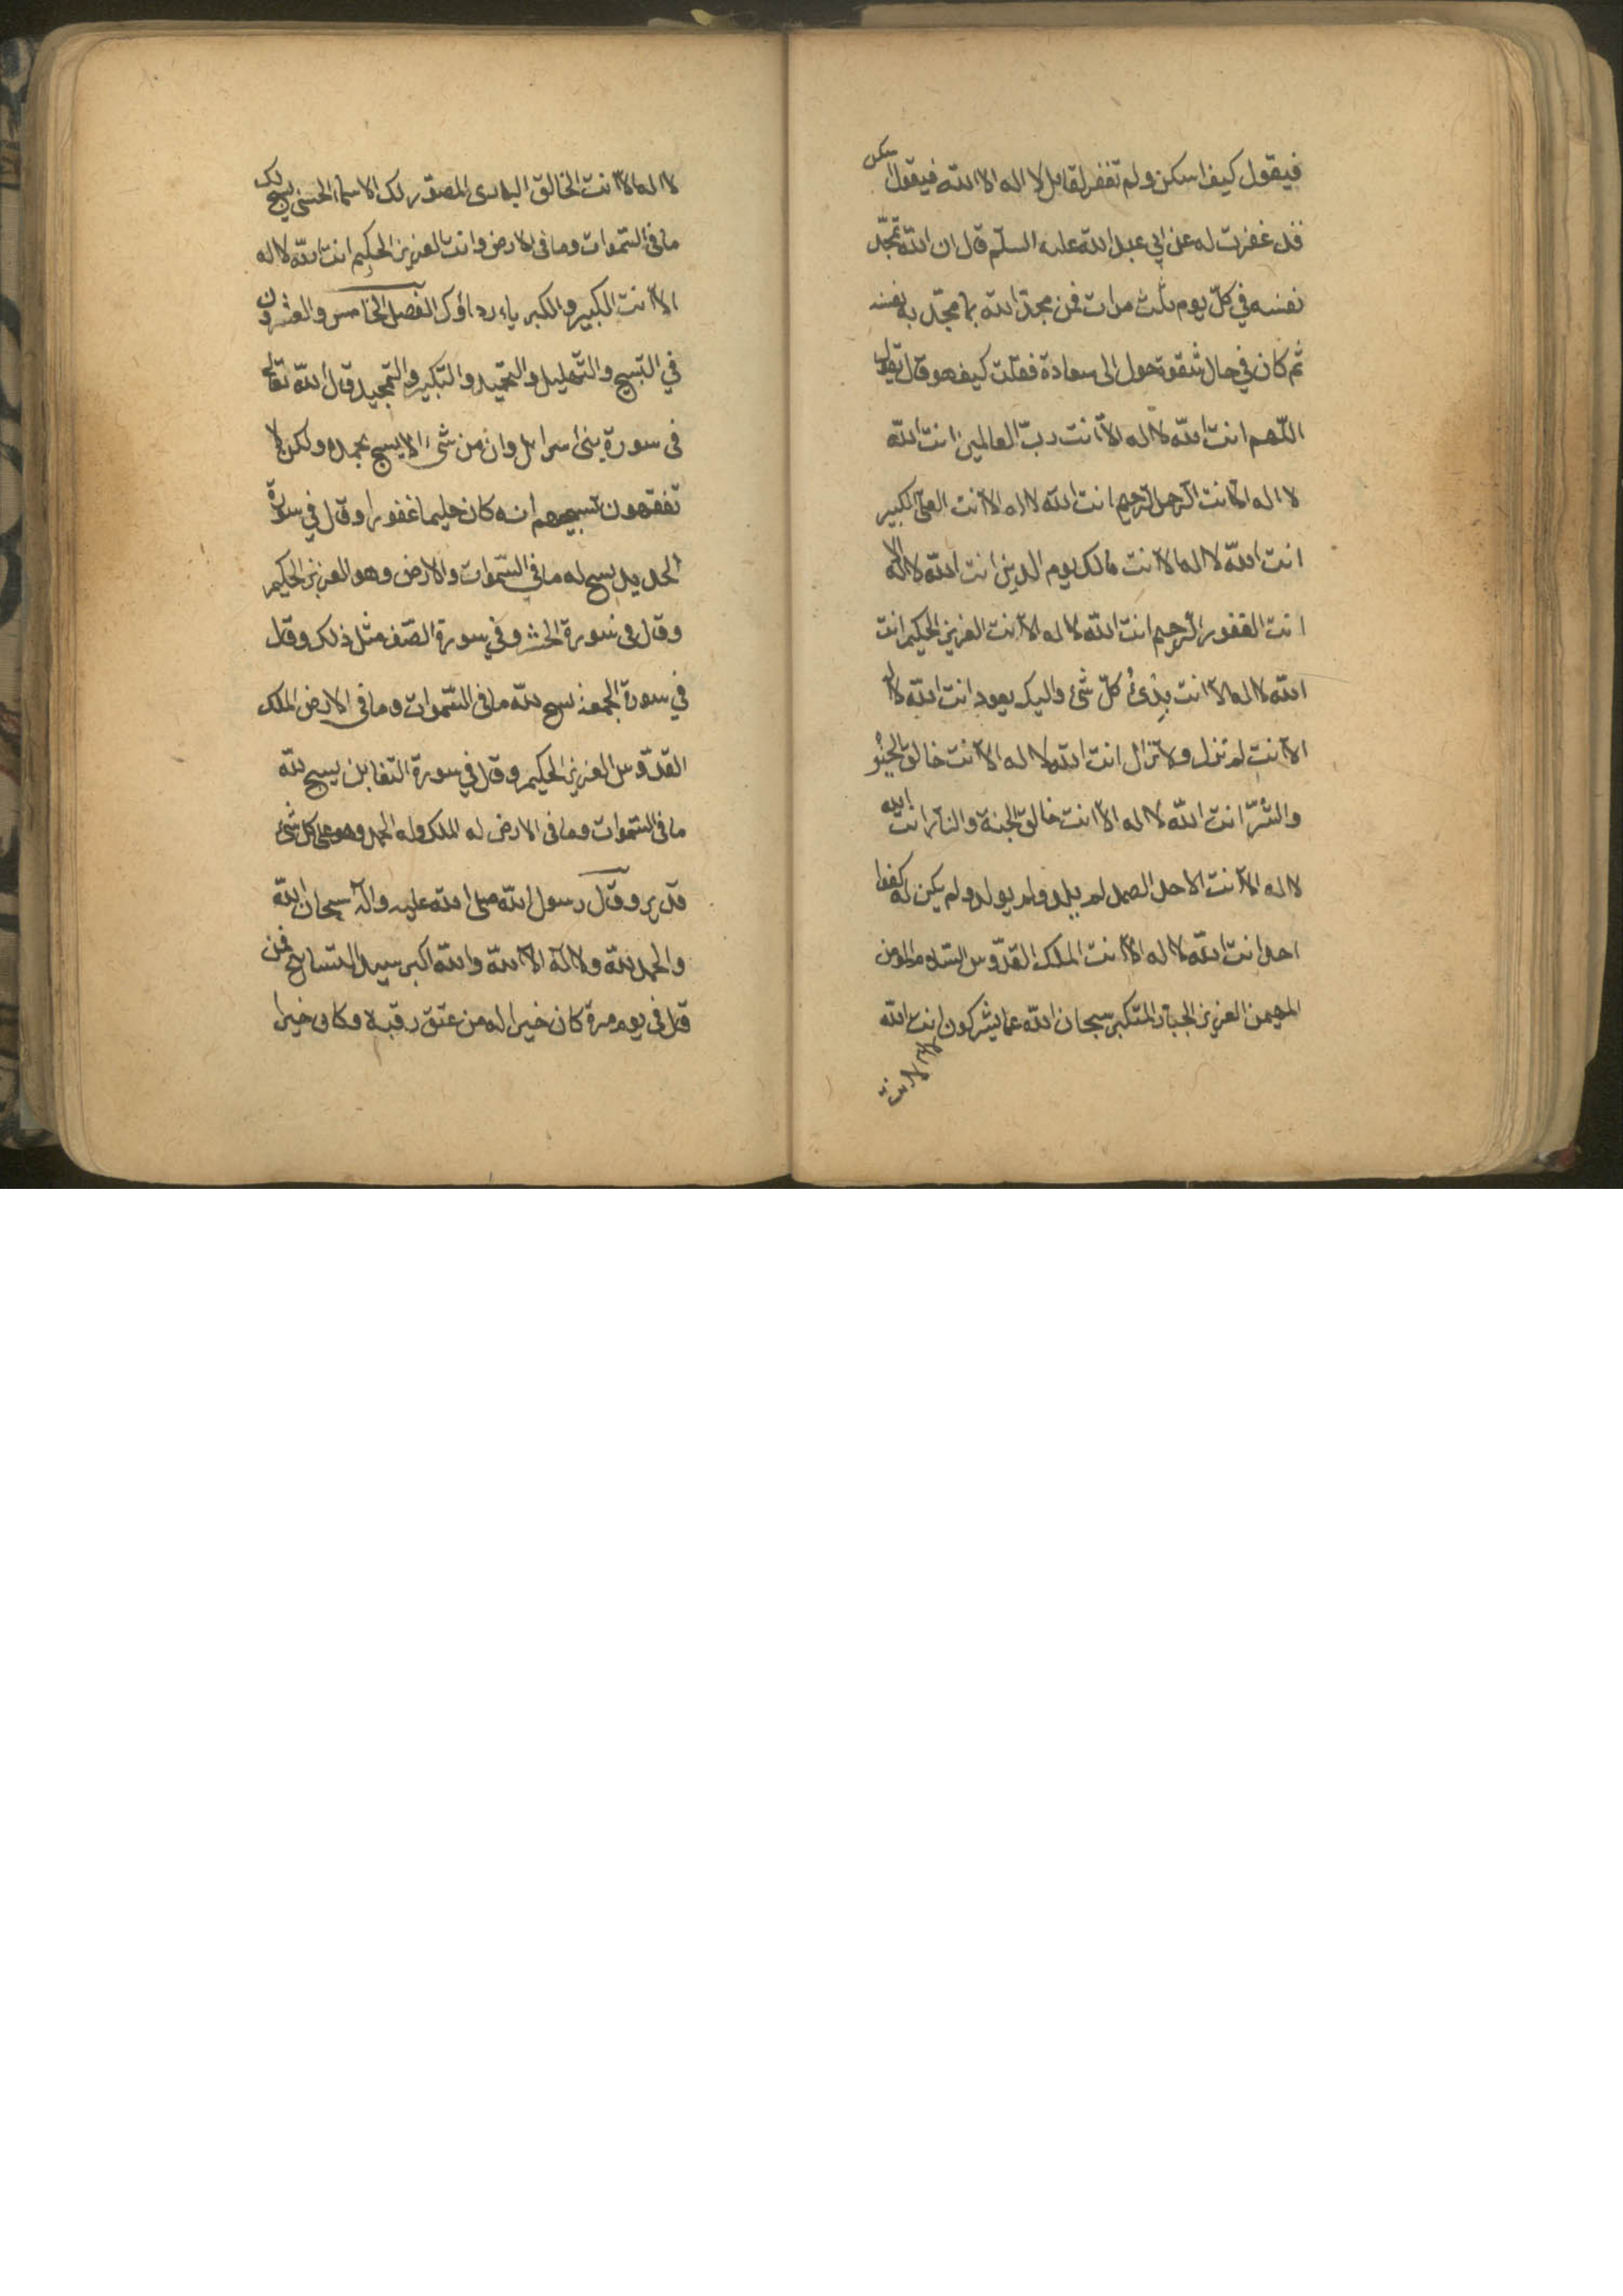 فيقول كيف اسكن ولم تغفر لقايل لا اله الا الله فيقول اسكن
فقد غفرت له عن ابى عبد الله عليه السلم قال ان الله تمجّد
نفسه في كلّ يوم ثلث مرات فمن مجدّ الله بما مجّد به نفسه
ثم كان في حال شقوة حول الى سعادة فقلت كيف هو قال تقول
اللّهم انت الله لا اله الّا انت ربّ العالمين انت الله
لا اله الّا انت الرحمن الرحيم انت الله لا اله الّا انت العلىّ الكبير
انت الله لا اله الّا انت مالك يوم الدين انت الله لا اله الا
انت الغفور الرحيم انت الله لا اله الّا انت العزيز الحكيم انت
الله لا اله الّا انت بدئ كلّ شئ واليك يعود انت الله لا اله
الّا انت لم تزل ولا تزال انت الله لا اله الّا انت خالق الخير
والشرّ انت الله لا اله الّا انت خالق الجنة والنار انت الله
لا اله الّا انت الاحد الصمد لم يلد ولم يولد ولم يكن له كفوا
احد انت الله لا اله الّا انت الملك القدّوس السلام المؤمن
المهيمن العزيز الجبار المتكبر سبحان الله عما يشركون انت الله
لا اله الا انت
لا اله الّا انت الخالق البارى المصوّر لك الاسماء الحسنى يسبح لك
ما فى السّموات وما فى الارض وانت العزيز الحكيم انت الله لا اله
الّا انت الكبير والكبرياء رداؤك الفصل الخامس والعشرون
في التسبيح والتّهليل والتحميد والتكبير والتمجيد قال الله تعالى
فى سورة بنى اسرايل وان من شئ الا يسبح بحمده ولكن لا
تفقهون تسبيحهم انه كان حليما غفورا وقال في سورة
الحديد يسبح له ما في السّموات والارض وهو العزيز الحكيم
وقال فى سورة الحشر وفي سورة الصّف مثل ذلك وقال
في سورة الجمعة يسبح لله ما فى السّموات وما فى الارض الملك
القدّوس العزيز الحكيم وقال في سورة التغابن يسبح لله
ما فى السّموات وما فى الارض له الملك وله الحمد وهو على كل شئ
قدير وقال رسول الله صلى الله عليه وآله سبحان الله
والحمد لله ولا آله الّا الله والله اكبر سيد التسابيح فمن
قال فى يوم مرة كان خيرا له من عتق رقبة وكان خيرا